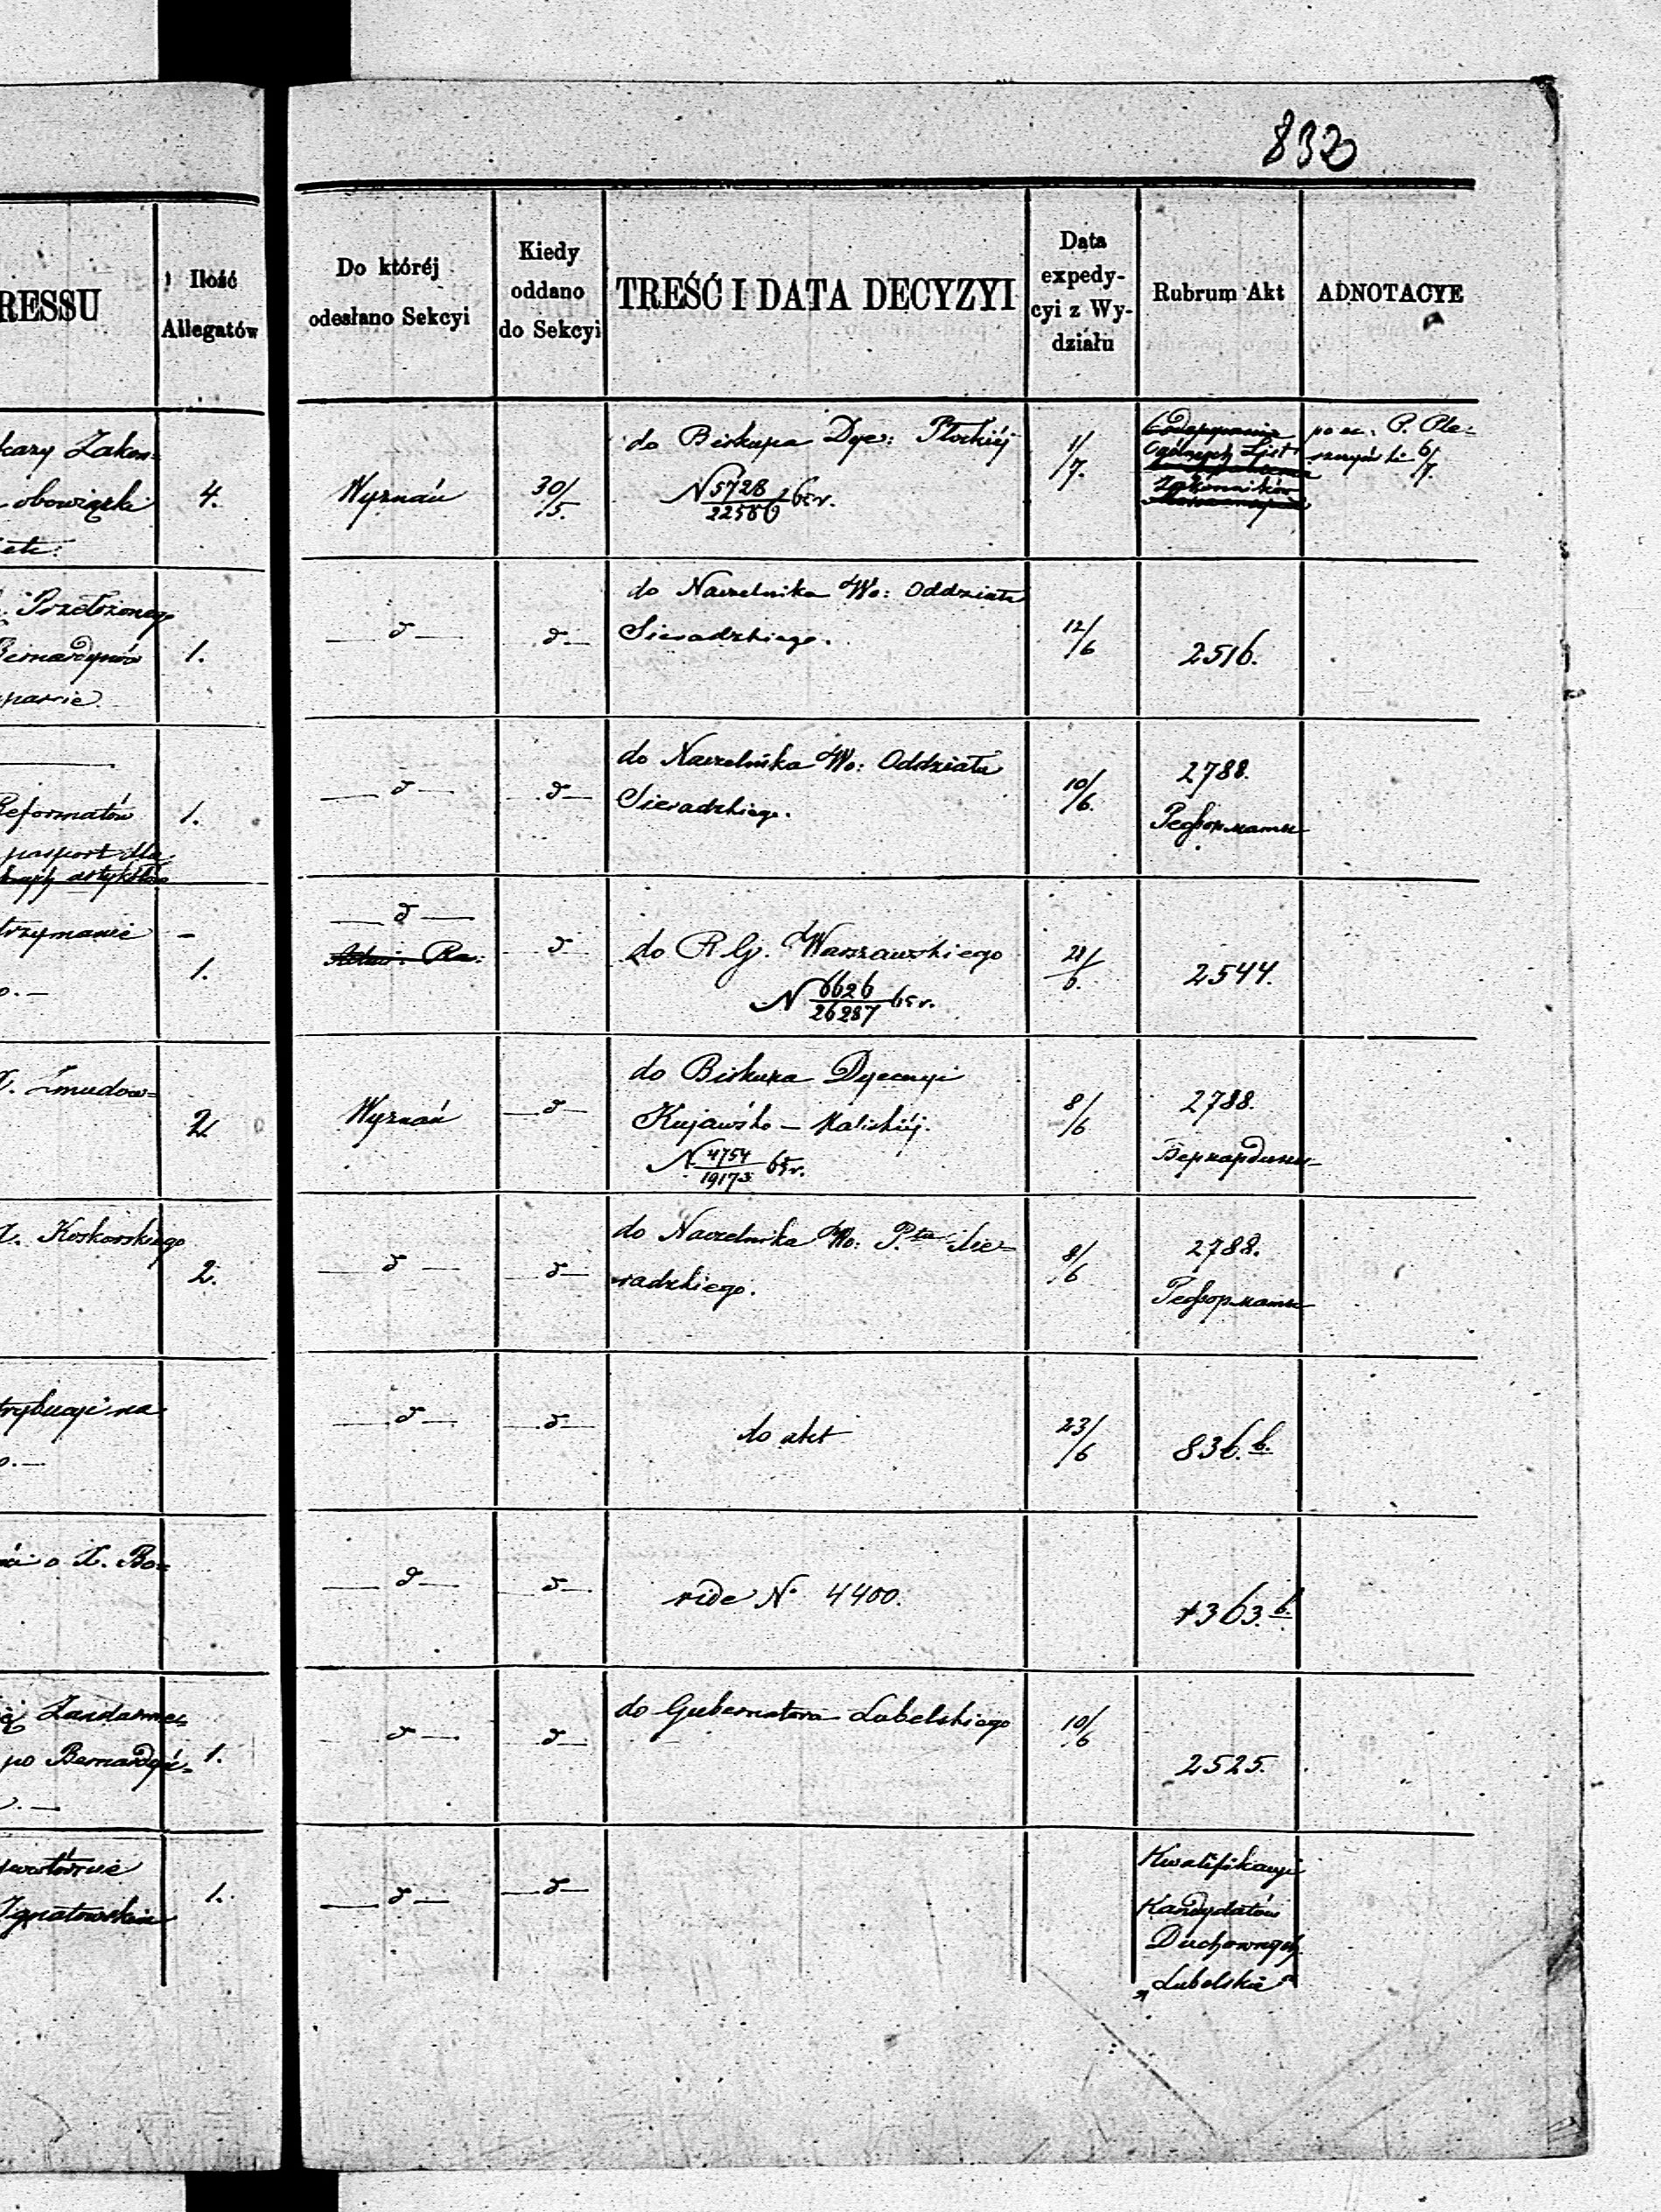 832
RESSU
Ilość
Allegatów
Do któréj
odesłano Sekcyi
Kiedy
oddano
do Sekcyi
TREŚĆ I DATA DECYZYI
Data
expedy-
cyi z Wy-
działu
Rubrum Akt
ADNOTACYE
kary Zakon=
obowiązki
etc:
4.
Wyznań
30/5.
do Biskupa Dye: Płockiéj
N 5728/22580 65 r.
1/7.
Ogólnych List
Zakonników
po ec. P. Ple=
6/7.
Przełożonego
Bernardynów
1.
— d —
d —
do Naczelnika Wo: Oddziału
Sieradzkiego.
12/6
2516.
Reformatów
pasport dla
1.
— d —
d —
do Naczelnika Wo: Oddziału
Sieradzkiego.
10/6.
2788.
Реформаты
trzymanie
o. —
–
1.
— d —
— d
do R. G. Warszawskiego
N 6626/26287 65 r.
21/6.
2544.
X. Żmudow=
2
Wyznań
— d —
do Biskupa Dyecezyi
Kujawsko – Kaliskiéj.
N 4754/19173 65 r.
8/6
2788.
Бернардины
X. Koskowskiego
2.
— d —
— d —
do Naczelnika Wo: P.tu Sie=
radzkiego.
8/6
2788.
Реформаты
trybucyi na
o. —
— d —
— d —
do akt
23/6
836. b.
o X. Bo=
— d —
— d —
vide N° 4400.
+363. b.
Żandarmer
po Bernardyń=
1.
— d —
d —
do Gubernatora Lubelskiego
10/6
2525.
Ignatowskim
1.
— d —
— d —
Kwalifikacyi
Kandydatów
Duchownych
„Lubelskie"